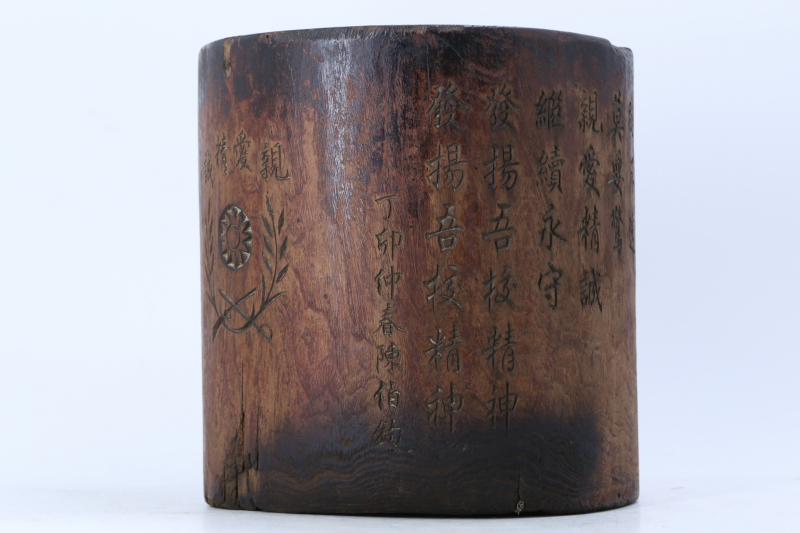 莫要驚
親愛精誠
繼續永守
發揚吾校精神
發揚吾校精神
丁卯仲春陳伯鈞
親愛精誠